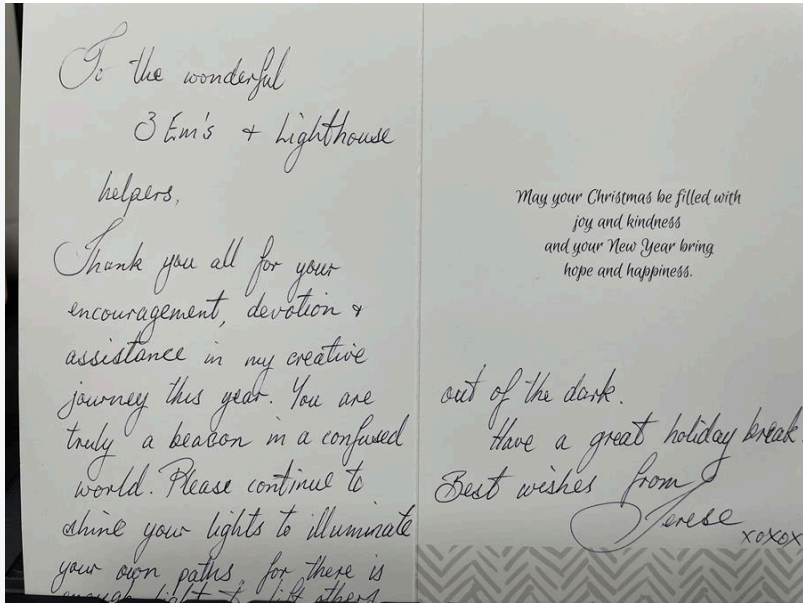 To the wonderful
3 Em's + Lighthouse
helpers,
Thank you all for your
encouragement, devotion +
assistance in my creative
journey this year. You are
truly a beacon in a confused
world. Please continue to
shine your lights to illuminate
your own paths, for there is
enough light to lift others
May your Christmas be filled with
joy and kindness
and your New Year bring
hope and happiness.
out of the dark.
Have a great holiday break.
Best wishes from
Terese
xoxox